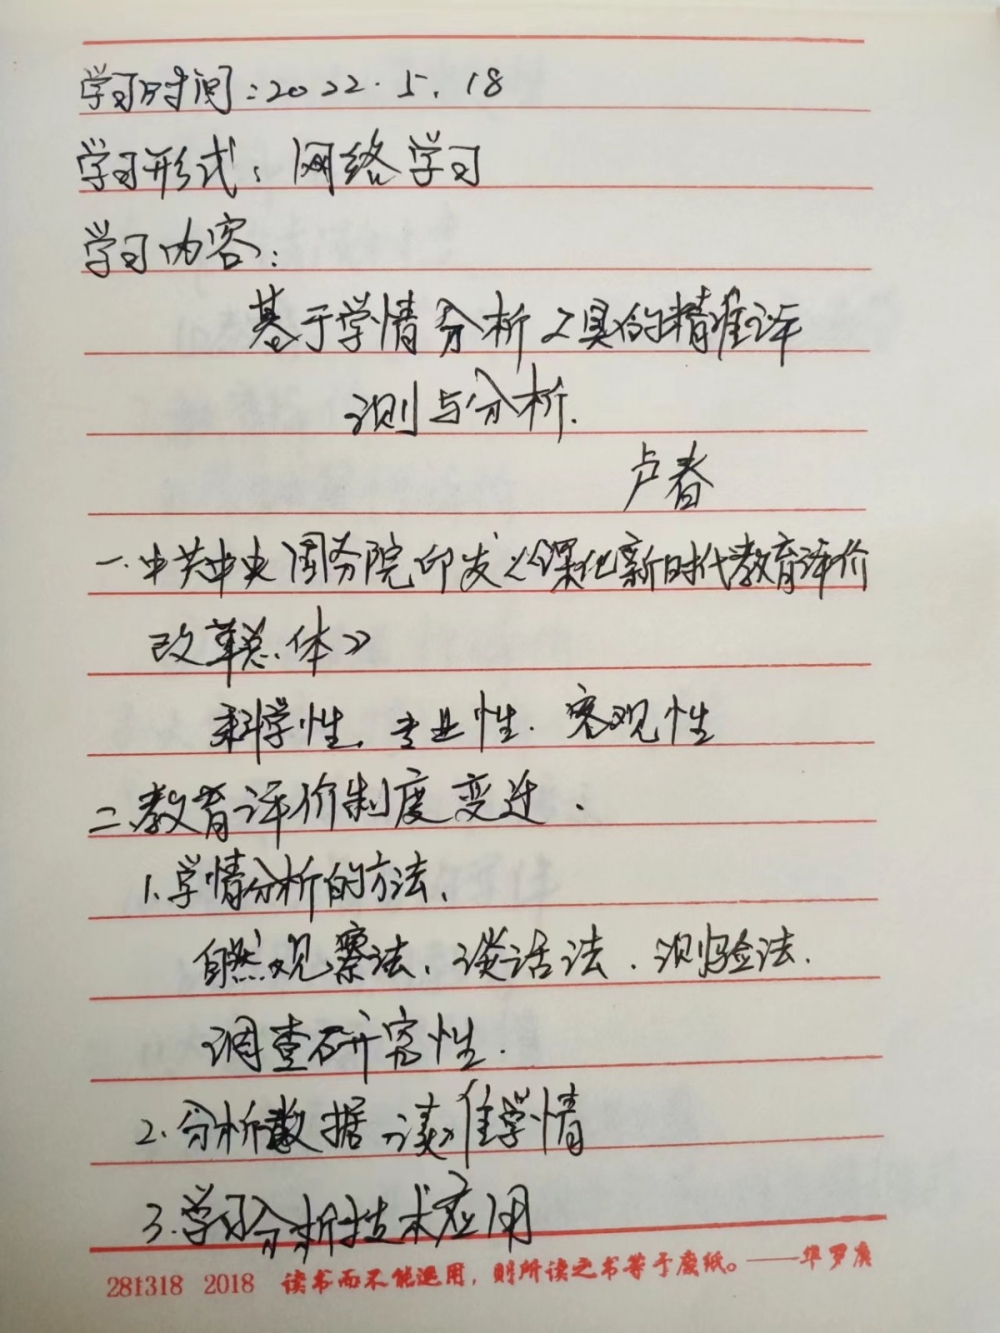 学习时间:2022.5.18
学习形式:网络学习
学习内容:
基于学情分析工具的精准评
测与分析.
卢春
一.中共中央国务院印发《深化新时代教育评价
改革总体》
科学性、专业性.客观性
二、教育评价制度变迁.
1、学情分析的方法、
自然观察法、谈话法.测验法.
调查研究性.
2.分析数据 读准学情
3.学习分析技术应用
281318 2018 读书而不能运用,则所读之书等于废纸。——华罗庚